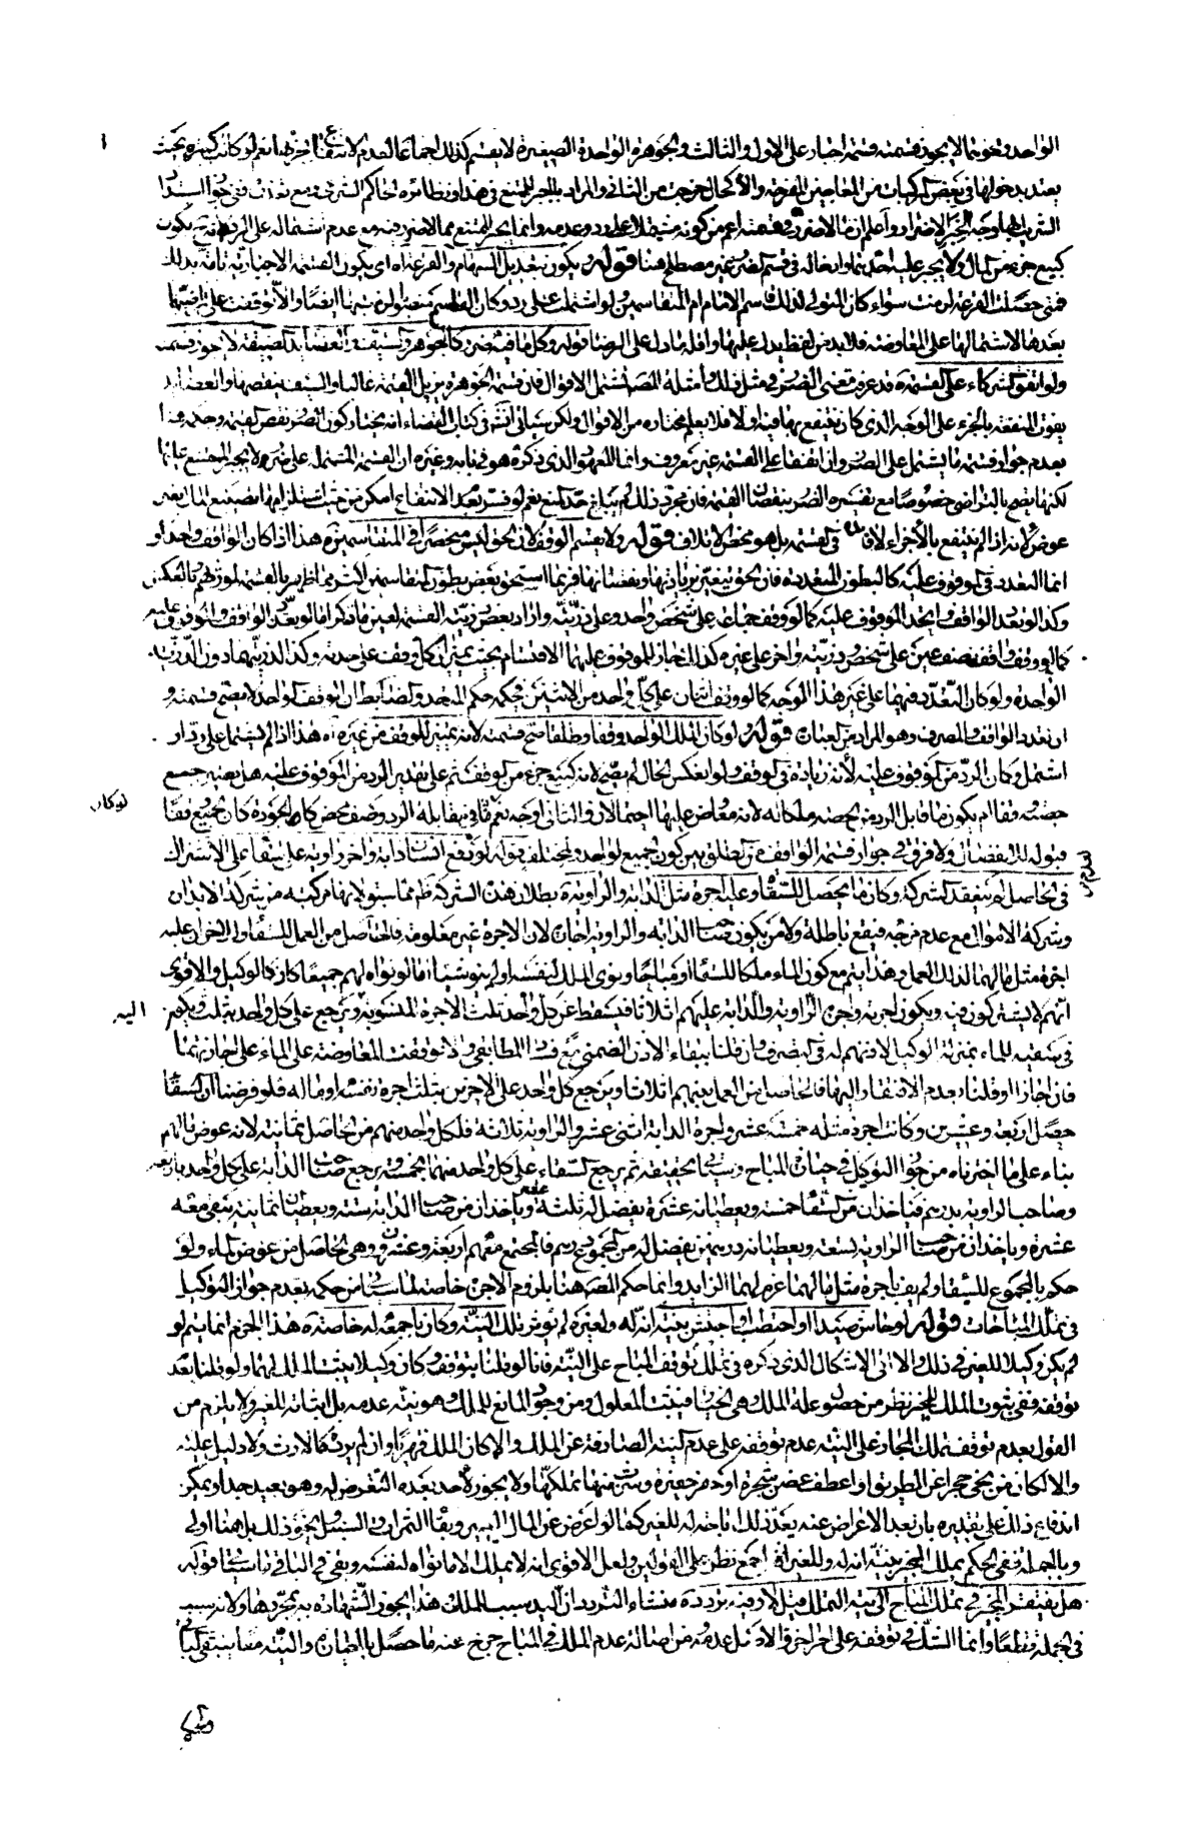 الواحد ونحوها لا يجوز قسمته قسمة اجبار على الاول والثالث والجوهرة الواحدة الصغيرة لا يقسم كذلك اجماعا لعدم الانتفاع باجزائها نعم لو كانت كبيرة بحيث
يعتد بدخولها في بعض المركبات من المعاجين المفرحة والأكحال خرجت من الثاني والمراد بالجبر الممتنع في هذا ونظائره
الشريك لها وجه الجبر الاضرار واعلم ان ما لا ضرر في قسمته اعم من كونه مشتملا على رد وعدمه وانما يجبر الممتنع مما لا ضرر فيه مع عدم اشتماله على الرد
كبيع جزء من المال ولا يجبر عليه احدهما وادخاله في قسم لضرب تميز مصطلح هنا قوله ويكون بتعديل السهام والقرعة اه اي يكون القسمة الاجبارية تامة بذلك
فمتى حصلت القرعة لزمت سواء كان المتولي لذلك قاسم الامام ام المتقاسمين ولو اشتملت على رد وكان القاسم منصوبا لزمت بها ايضا والا توقفت على تراضيهما
بعدها لاشتمالها على المعاوضة فلا بد من لفظ يدل عليها واقله ما دل على الرضا قوله وكل ما فيه ضرر كالجوهر والسيف والعضايد الضيقة لا يجوز قسمته
ولو اتفق الشركاء على القسمة قد عرفت معنى الضرر في مثل ذلك وامثلة المصنف تشتمل الاقوال فان قسمة الجوهرة يزيل القيمة غالبا والسيف ينقصها والعضايد
يفوت المنفعة بالجزء على الوجه الذي كان ينتفع بها فيه اولا فلا يعلم مختاره من الاقوال ولكن سيأتي انشاء الله في كتاب القضاء انه يختار كون الضرر نقص القيمة وحكمه هنا
بعدم جواز قسمة ما يشتمل على الضرر وان اتفقا على القسمة غير معروف وانما المعهود الذي ذكره هو في بابه وغيره ان القسمة المشتملة على ضرر لا يجبر الممتنع عليها
لكنها يصح بالتراضي خصوصا مع تفسيره الضرر بنقصان القيمة فان مجرد ذلك لم يبلغ حد المنع نعم لو فسر بعدم الانتفاع امكن من حيث استلزامها تضييع المال بغير
عوض لانه اذا لم ينتفع بالاجزاء لا فائدة في القسمة بل هو محض الاتلاف قوله ولا يقسم الوقف لان الحق ليس منحصرا في المتقاسمين اه هذا اذا كان الواقف واحدا و
انما التعدد في الموقوف عليه كالبطون المتعددة فان الحق يتغير بزيادتها ونقصانها فربما استحق بعض بطون المتقاسمين اكثر مما ظهر بالقسمة لمورثهم بالعكس
وكذا لو تعدد الواقف واتحد الموقوف عليه كما لو وقف جماعة على شخص واحد وعلى ذريته واراد بعض ذريته القسمة لعين ما ذكر اما لو تعدد الواقف والموقوف عليه
كما لو وقف واقف نصف عين على شخص وذريته واخر على غيره كذلك جاز للموقوف عليهما الاقتسام بحيث يتميز كل وقف على حدته وكذا لذريتهما دون الذرية
الواحدة ولو كان التعدد فيهما على غير هذا الوجه كما لو وقف اثنان على كل واحد من الاثنين فحكمه حكم المتحد والضابط ان الوقف الواحد لا يصح قسمته و
ان تعدد الواقف والمصرف وهو المراد من العبارة قوله ولو كان الملك الواحد وقفا وطلقا صح قسمته لانه يميز للوقف من غيره اه هذا اذا لم يشتمل على رد او
اشتمل وكان الرد من الموقوف عليه لأنه زيادة في الوقف ولو انعكس الحال لم يصح لانه كبيع جزء من الوقف ثم على تقدير الرد من الموقوف عليه هل يصير جميع
حصته وقفا ام يكون ما قابل الرد من الحصة ملكا له لانه معاوض عليها احتمالان والثاني اوجه نعم فيما بمقابلة الرد وصف محض كالجودة كان الجميع وقفا
لو كان
قبوله للانفصال ولا فرق في جواز قسمة الواقف من الطلق بين كون الجميع لواحد والمختلف قوله لو دفع انسان دابة واخر راوية على سقاء على الاشتراك
لعدم
في الحاصل لم ينعقد الشركة وكان ما يحصل للسقاء وعليه اجرة مثل الدابة والراوية بطلان هذه الشركة ظاهر مما سبق لانها مركبة من شركة الابدان
وشركة الاموال مع عدم مزجه فيقع باطلة ولا من يكون صاحب الدابة والراوية اجاره لان الاجرة غير معلومة فالحاصل من العمل للسقاء ولا لاخرين عليه
اجرة مثل مالهما لذلك العمل وهذا يتم مع كون الماء ملكا للسقاء او مباحا ونوى الملك لنفسه او لم ينو شيئا اما لو نواه لهم جميعا كان كالوكيل والاقوى
انهم لا يشتركون فيه ويكون اجرته واجرة الراوية والدابة عليهم اثلاثا فيسقط عن كل واحد ثلث الاجرة المنسوبة ويرجع على كل واحد بثلث ويكون
اليه
في سقيه للماء بمنزلة الوكيل لاذنهم له في التصرف وان قلنا ببقاء الاذن الضمني مع فساد المطابقي ولا توقفت المعاوضة على الماء على اجازتهما
فان اجازا او قلنا بعدم الافتقار اليها فالحاصل من العمل بينهم اثلاثا ويرجع كل واحد على الاخرين بثلث اجرة نفسه او ماله فلو فرضنا ان السقاء
حصل اربعة وعشرين وكانت اجرة مثله خمسة عشر واجرة الدابة اثني عشر والراوية ثلاثة فلكل واحد منهم من الحاصل ثمانية لانه عوض مالهم
بناء على ما اخترناه من جواز التوكيل في حيازة المباح وسيأتي تحقيقه ثم يرجع السقاء على كل واحد منهما بخمسة ويرجع صاحب الدابة على كل واحد باربعة
وصاحب الراوية بدرهم فياخذان من السقاء خمسة ويعطيانه عشرة يفضل له ثلثة عشر وياخذان من صاحب الدابة ستة ويعطيان ثمانية يبقى معه
عشرة وياخذان من صاحب الراوية تسعة ويعطيانه درهمين يفضل له من المجموع درهم فالمجتمع معهم اربعة وعشرون وهي الحاصل من عوض الماء ولو
حكم بالمجموع للسقاء ولم يف باجرة مثل مالهما غرم لهما الزايد وانما حكم المصنف هنا بلزوم الاجرة خاصة لما سيأتي من حكمه بعدم جواز التوكيل
في تملك المباحات قوله لو حاش صيدا او احتطب او احتش بنية انه له ولغيره لم تؤثر تلك النية وكان باجمعه له خاصة اه هذا الجزم انما يتم لو
لم يكن وكيلا للغير في ذلك والا اتى الاشكال الذي ذكره في تملك بتوقف المباح على النية فانا لو قلنا بتوقفه وكان وكيلا يثبت الملك لهما ولو قلنا بعدم
توقفه ففي ثبوت الملك للمحيز نظر من حصول علة الملك وهي الحيازة فيثبت المعلول ومن وجود المانع للملك وهو نية عدمه بل اثباته للغير ولا يلزم من
القول بعدم توقف تملك المحاز على النية عدم توقفه على عدم النية الصارفة عن الملك والا كان الملك قهريا وان لم يرد كالارث ولا دليل عليه
والا لكان من نحى حجرا عن الطريق او اعطف غصن شجرة او دفع حفيرة وشرب منها تملكها ولا يجوز لاحد بعده التعرض له وهو بعيد جدا ويمكن
اندفاع ذلك على تقديره بان نعد الاعراض عنه بعد ذلك اباحة له للغير كما لو اعرض عن المال اليسير وبقايا الثمرات والسنبل ويجوز ذلك بل هنا اولى
وبالجملة ففي الحكم بملك المحيز بنية انه له وللغير اجمع نظر على القولين ولعل الاقوى انه لا يملك الا ما نواه لنفسه ويبقى في الباقي ما سيأتي قوله
هل يفتقر المحيز في تملك المباح الى نية التملك قيل لا وفيه تردد اه منشاء التردد ان اليد سبب الملك ولهذا يجوز الشهادة به بمجردها ولانه سبب
في الجملة قطعا وانما الشك في توقفه على امر اخر والاصل عدمه ومن اصالة عدم الملك في المباح خرج عنه ما حصل بالحيازة والنية معا يبقى الباقي